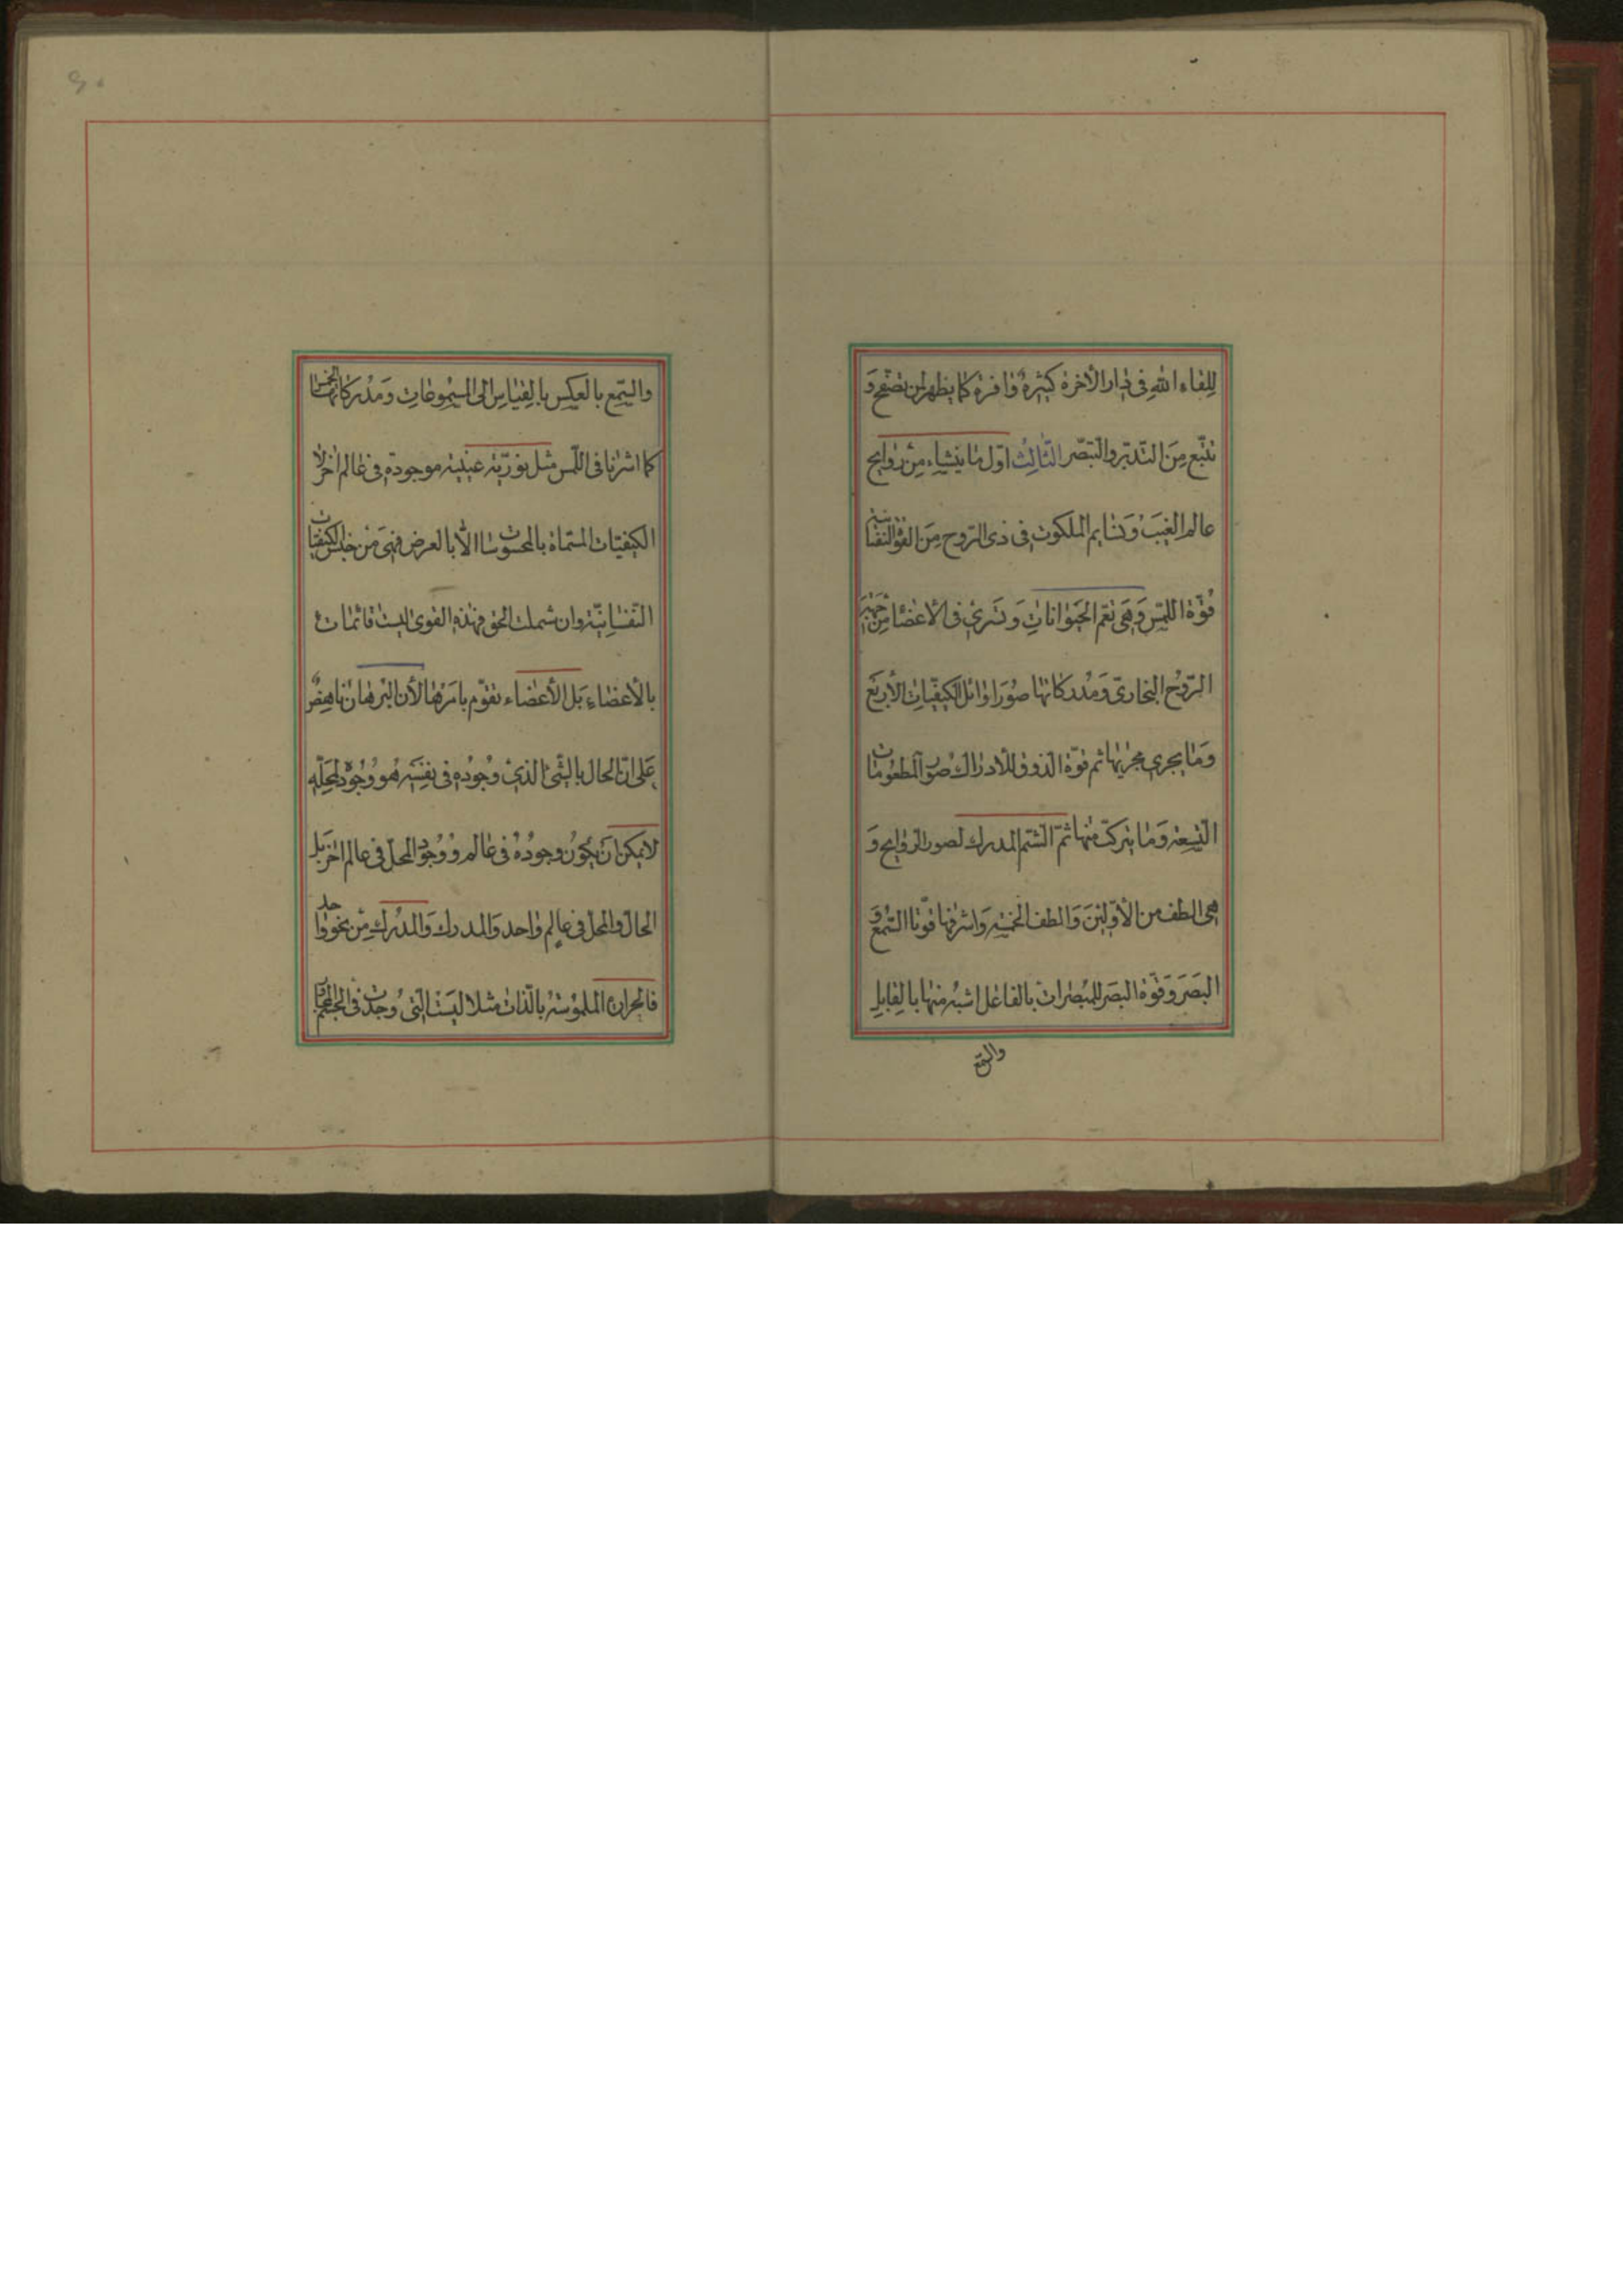 لِلِقاء اللهِ فی دٰارالأخرة كثیرةٌ وٰافرة كما یظهر لمن تصفّح وَ
تتّبع مِنَ التّدبّر والتبصّر الثّالِثُ اوّل مٰا ینشاء مِنْ رَوٰایح
عالم الغیَب وَ نسٰایم الملكوت فی ذی الرّوح مِنَ القوٰ النفسٰانیّة
قُوّة اللّمس وَ هیَ تعّم الحَیَوٰانٰاتِ وَ تَسْریٰ فی الأعضٰا مِنْ جهَة
الرّوْح البخاریّ وَ مُدركاتها صُوَر اوٰائل الكیفیّاتِ الأربَع
وَ مٰا یجری مجریٰها ثم قوّة الذوق للأدرٰاك صوَر المطعُومٰات
التّسِعة وَ مٰا یتركّب منها ثمّ الشّم المدرك لصور الرّوٰایح وَ
هی الطف من الأوّلینَ وَ الطف الخمسَةِ وَ اشرفها قوّتا السّمْع وَ
البَصَر وَ قوّة البَصَر للمُبصَراتِ بالفاعل اشبهُ منها بالقِابلِ
والسّمع
والسّمِع بالعَكسِ بالِقیٰاسِ الی المسْمُوعٰاتِ وَ مُدْرَكاتها الخمس
كما اشرنا فی اللّمس مثُل نوریّة غیبیّة موجودة فی عٰالم اخر لا
الكیفیّات المسّماة بالمحسُوسٰات الاّ بالعرض فهیَ مِن جِنس الكیفیّات
النّفسٰانیّة وان شملت الحّق فهٰذه القویٰ لیست قائمٰات
بالأعضٰاءِ بَل الأعضٰاء تقوّم بامَرهٰا لأن البُرهانَ ناهِضٌ
عَلی انّ الحال بالشّیْ الّذی وُجُودُه فی نفِسَه هُو وُجُودٌ لمَحِلّه
لایمكن انَ یكونَ وجودُهُ فی عٰالم وَ وُجود المحلّ فی عالم اخرَ بَل
الحالّ والمحلّ فی عالم وٰاحد وَ المدرك وَ المدرَكُ مِنْ نحو وٰاحد
فالحرارة الملموسَة بالذّاتِ مثلا لیَست الّتی وُجدت فی الجسم